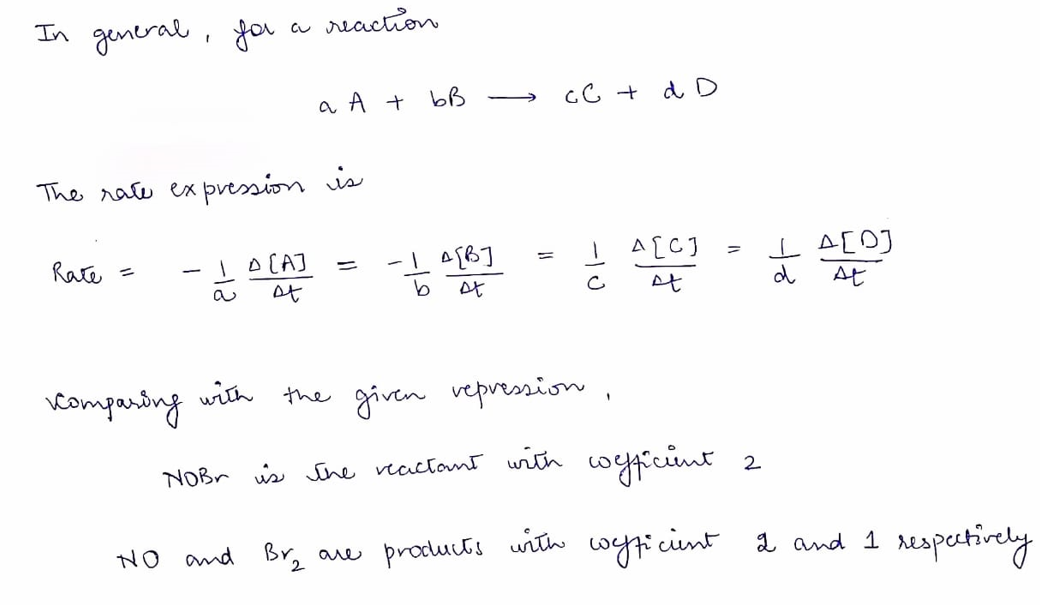 In general, for a reaction
a A + bB ⟶ cC + d D
The rate expression is
Rate = - 1/a Δ[A]/Δt = - 1/b Δ[B]/Δt = 1/c Δ[C]/Δt = 1/d Δ[D]/Δt
Comparing with the given repression,
NOBr is the reactant with coefficient 2
NO and Br₂ are products with coefficient 2 and 1 respectively